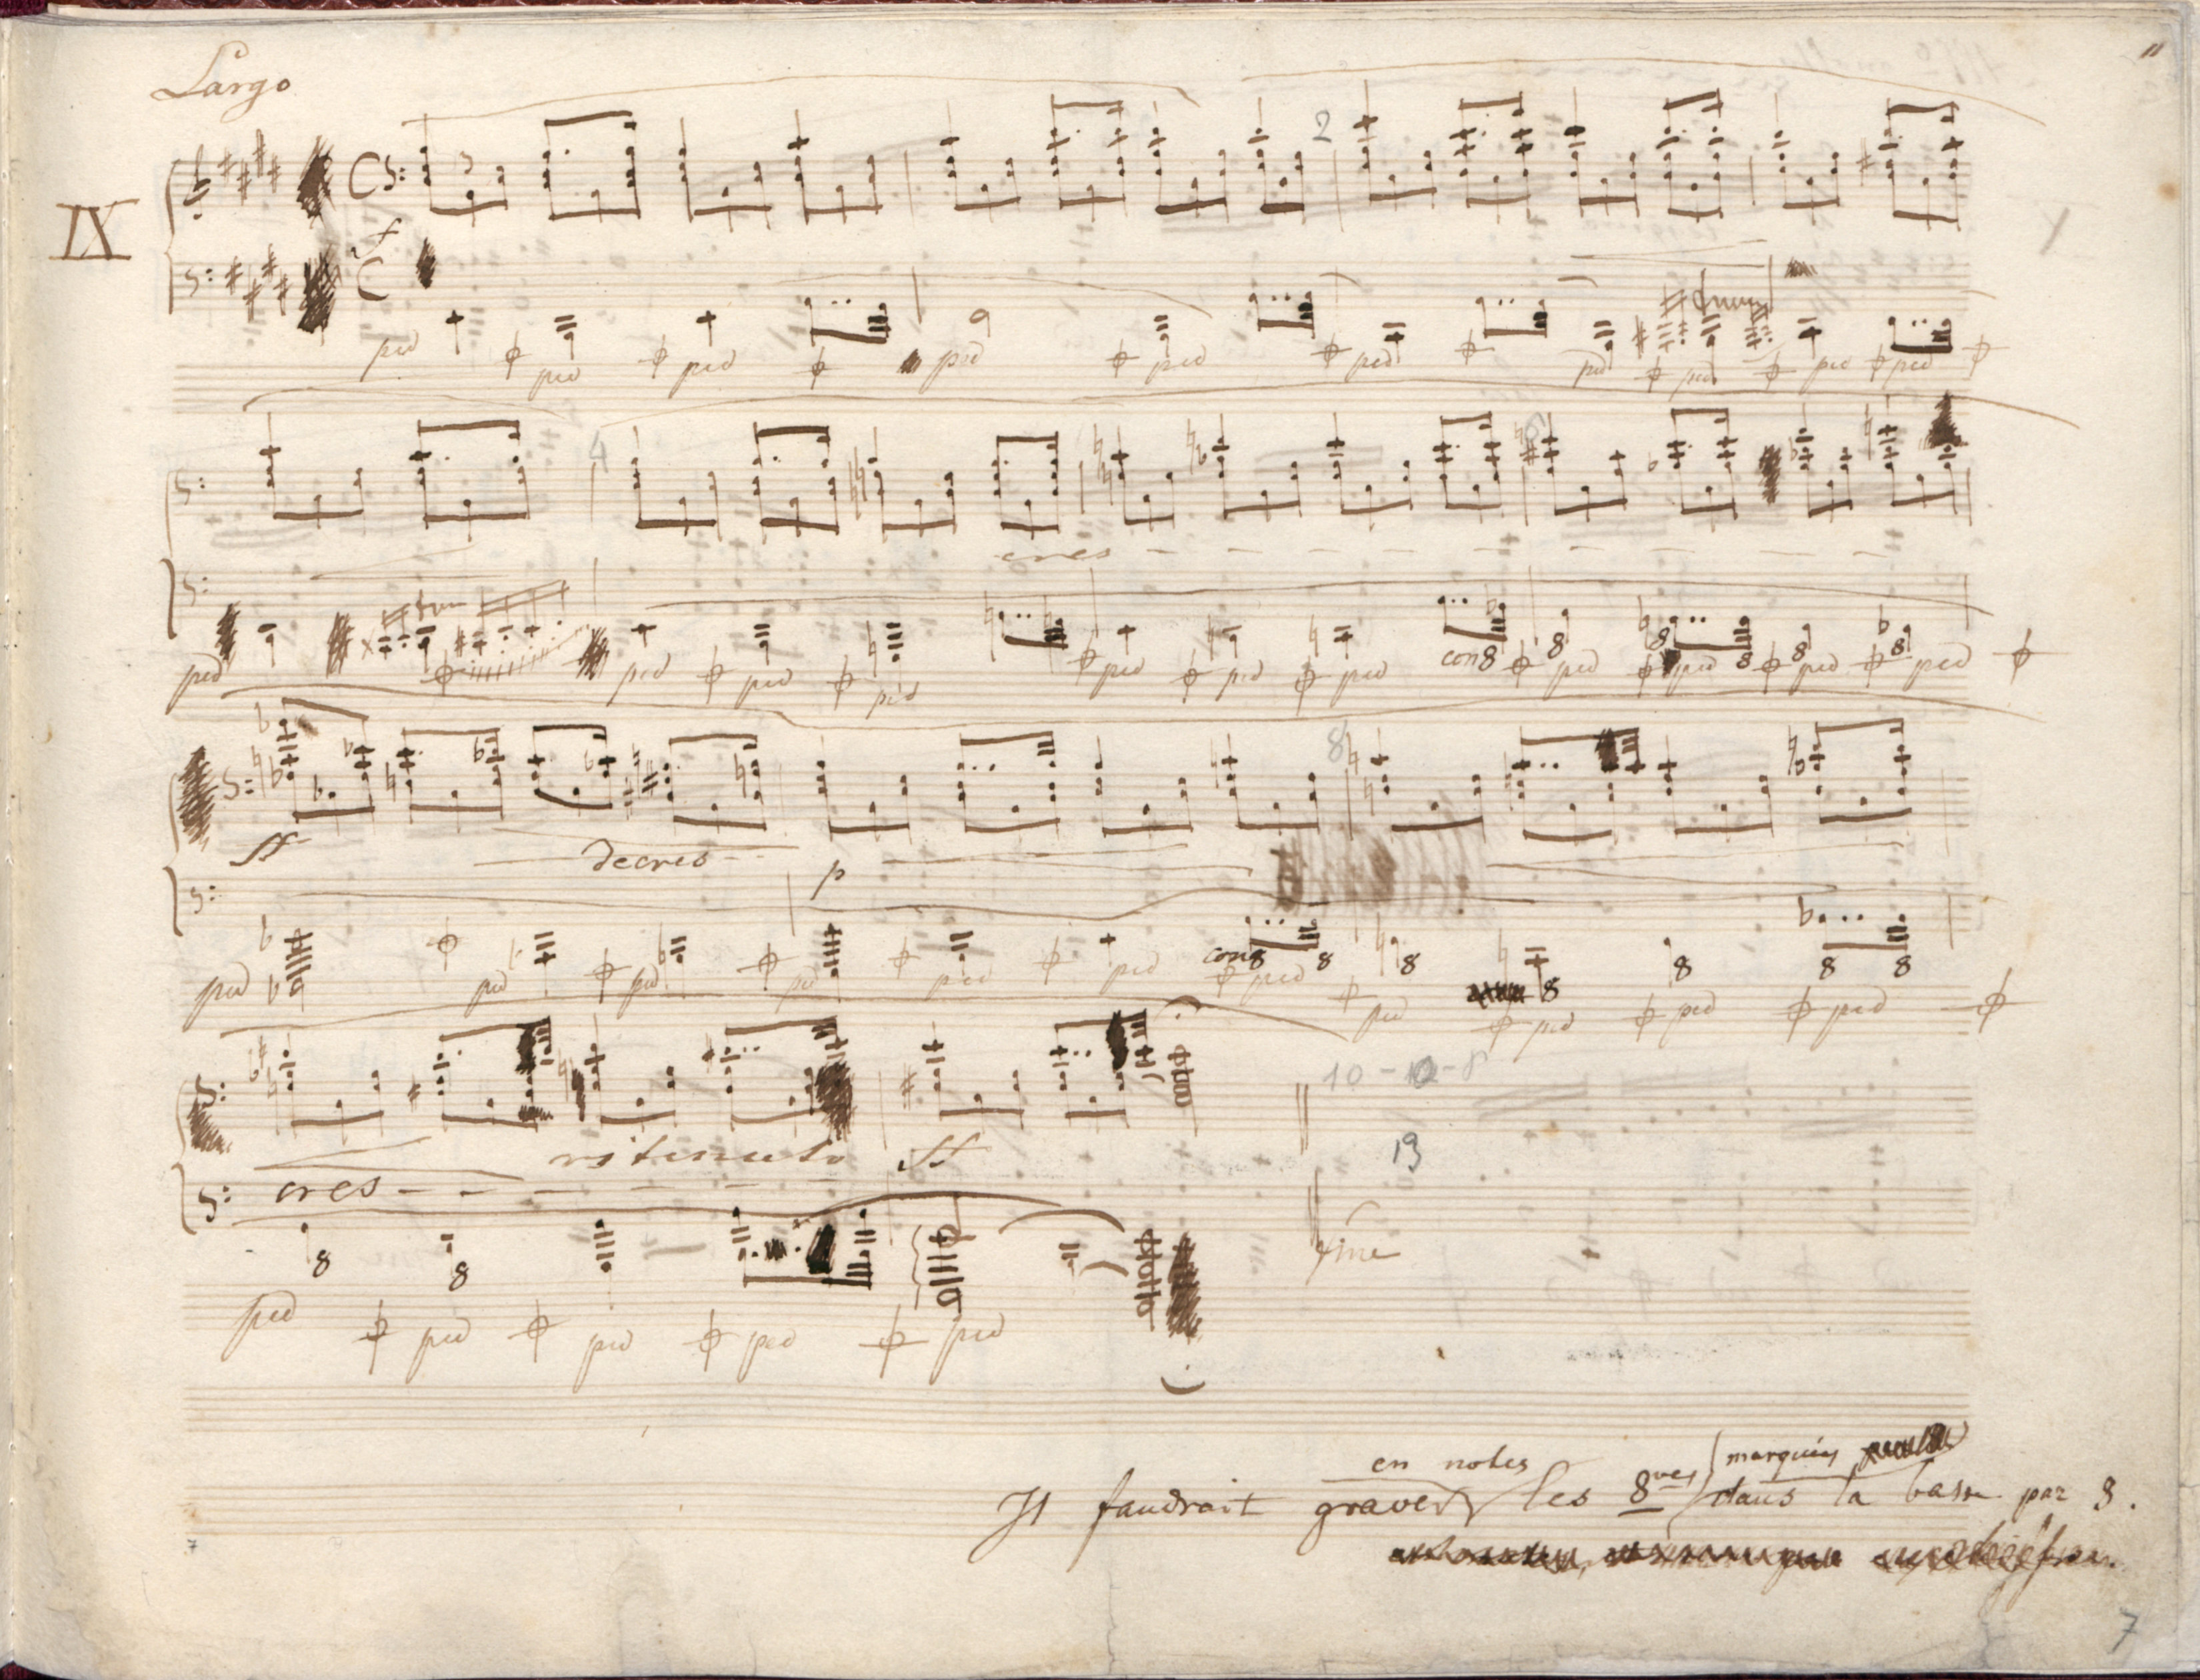 Largo
11
IX
C
3
2
f
C
ped ped ped ped ped ped ped ped ped ped
4
6
cres
ped ped ped ped ped ped ped con 8 8 ped 8 ped 8 8 ped 8 ped
8
ff
decres
p
ped ped ped ped ped ped con 8 8 ped 8 ped 8 ped 8 ped 8 8 ped
10-10-8
ritenuto
ff
19
cres
fine
8 8
ped ped ped ped ped
en notes
marquées
Il faudrait graver les 8ves dans la basse par 8.
7
7